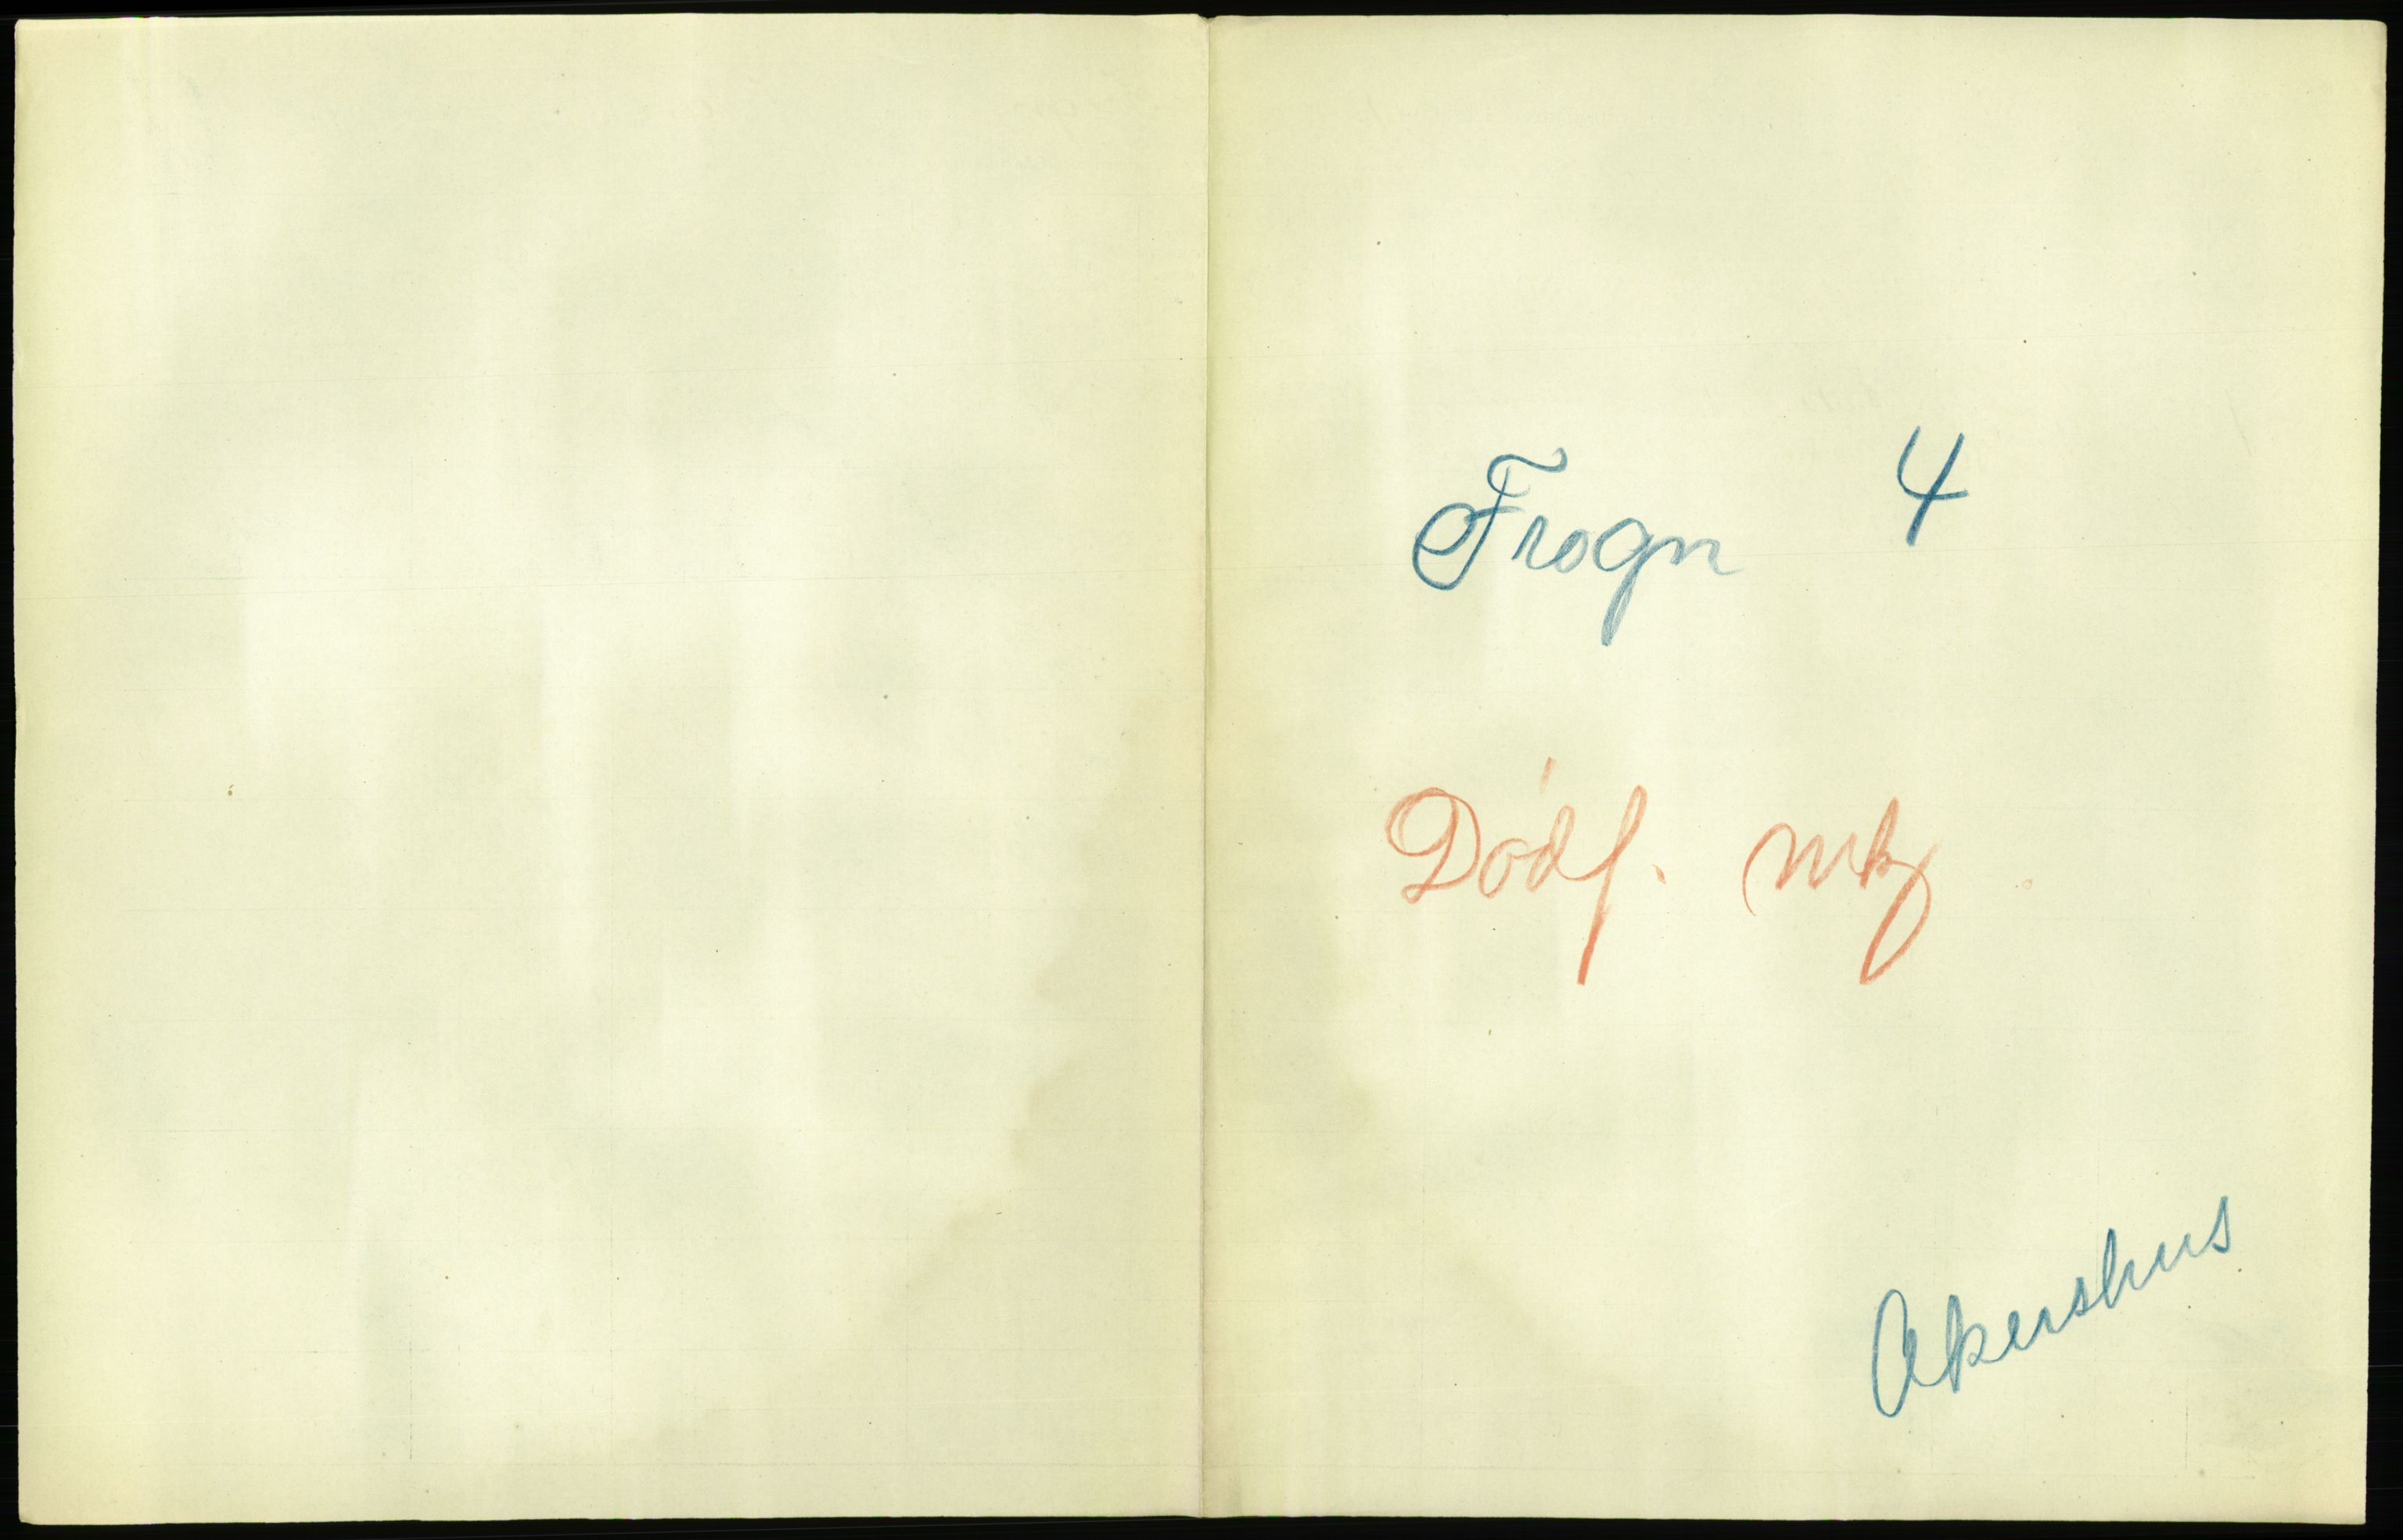 Frogn 4
Dødf. mk
Akershus